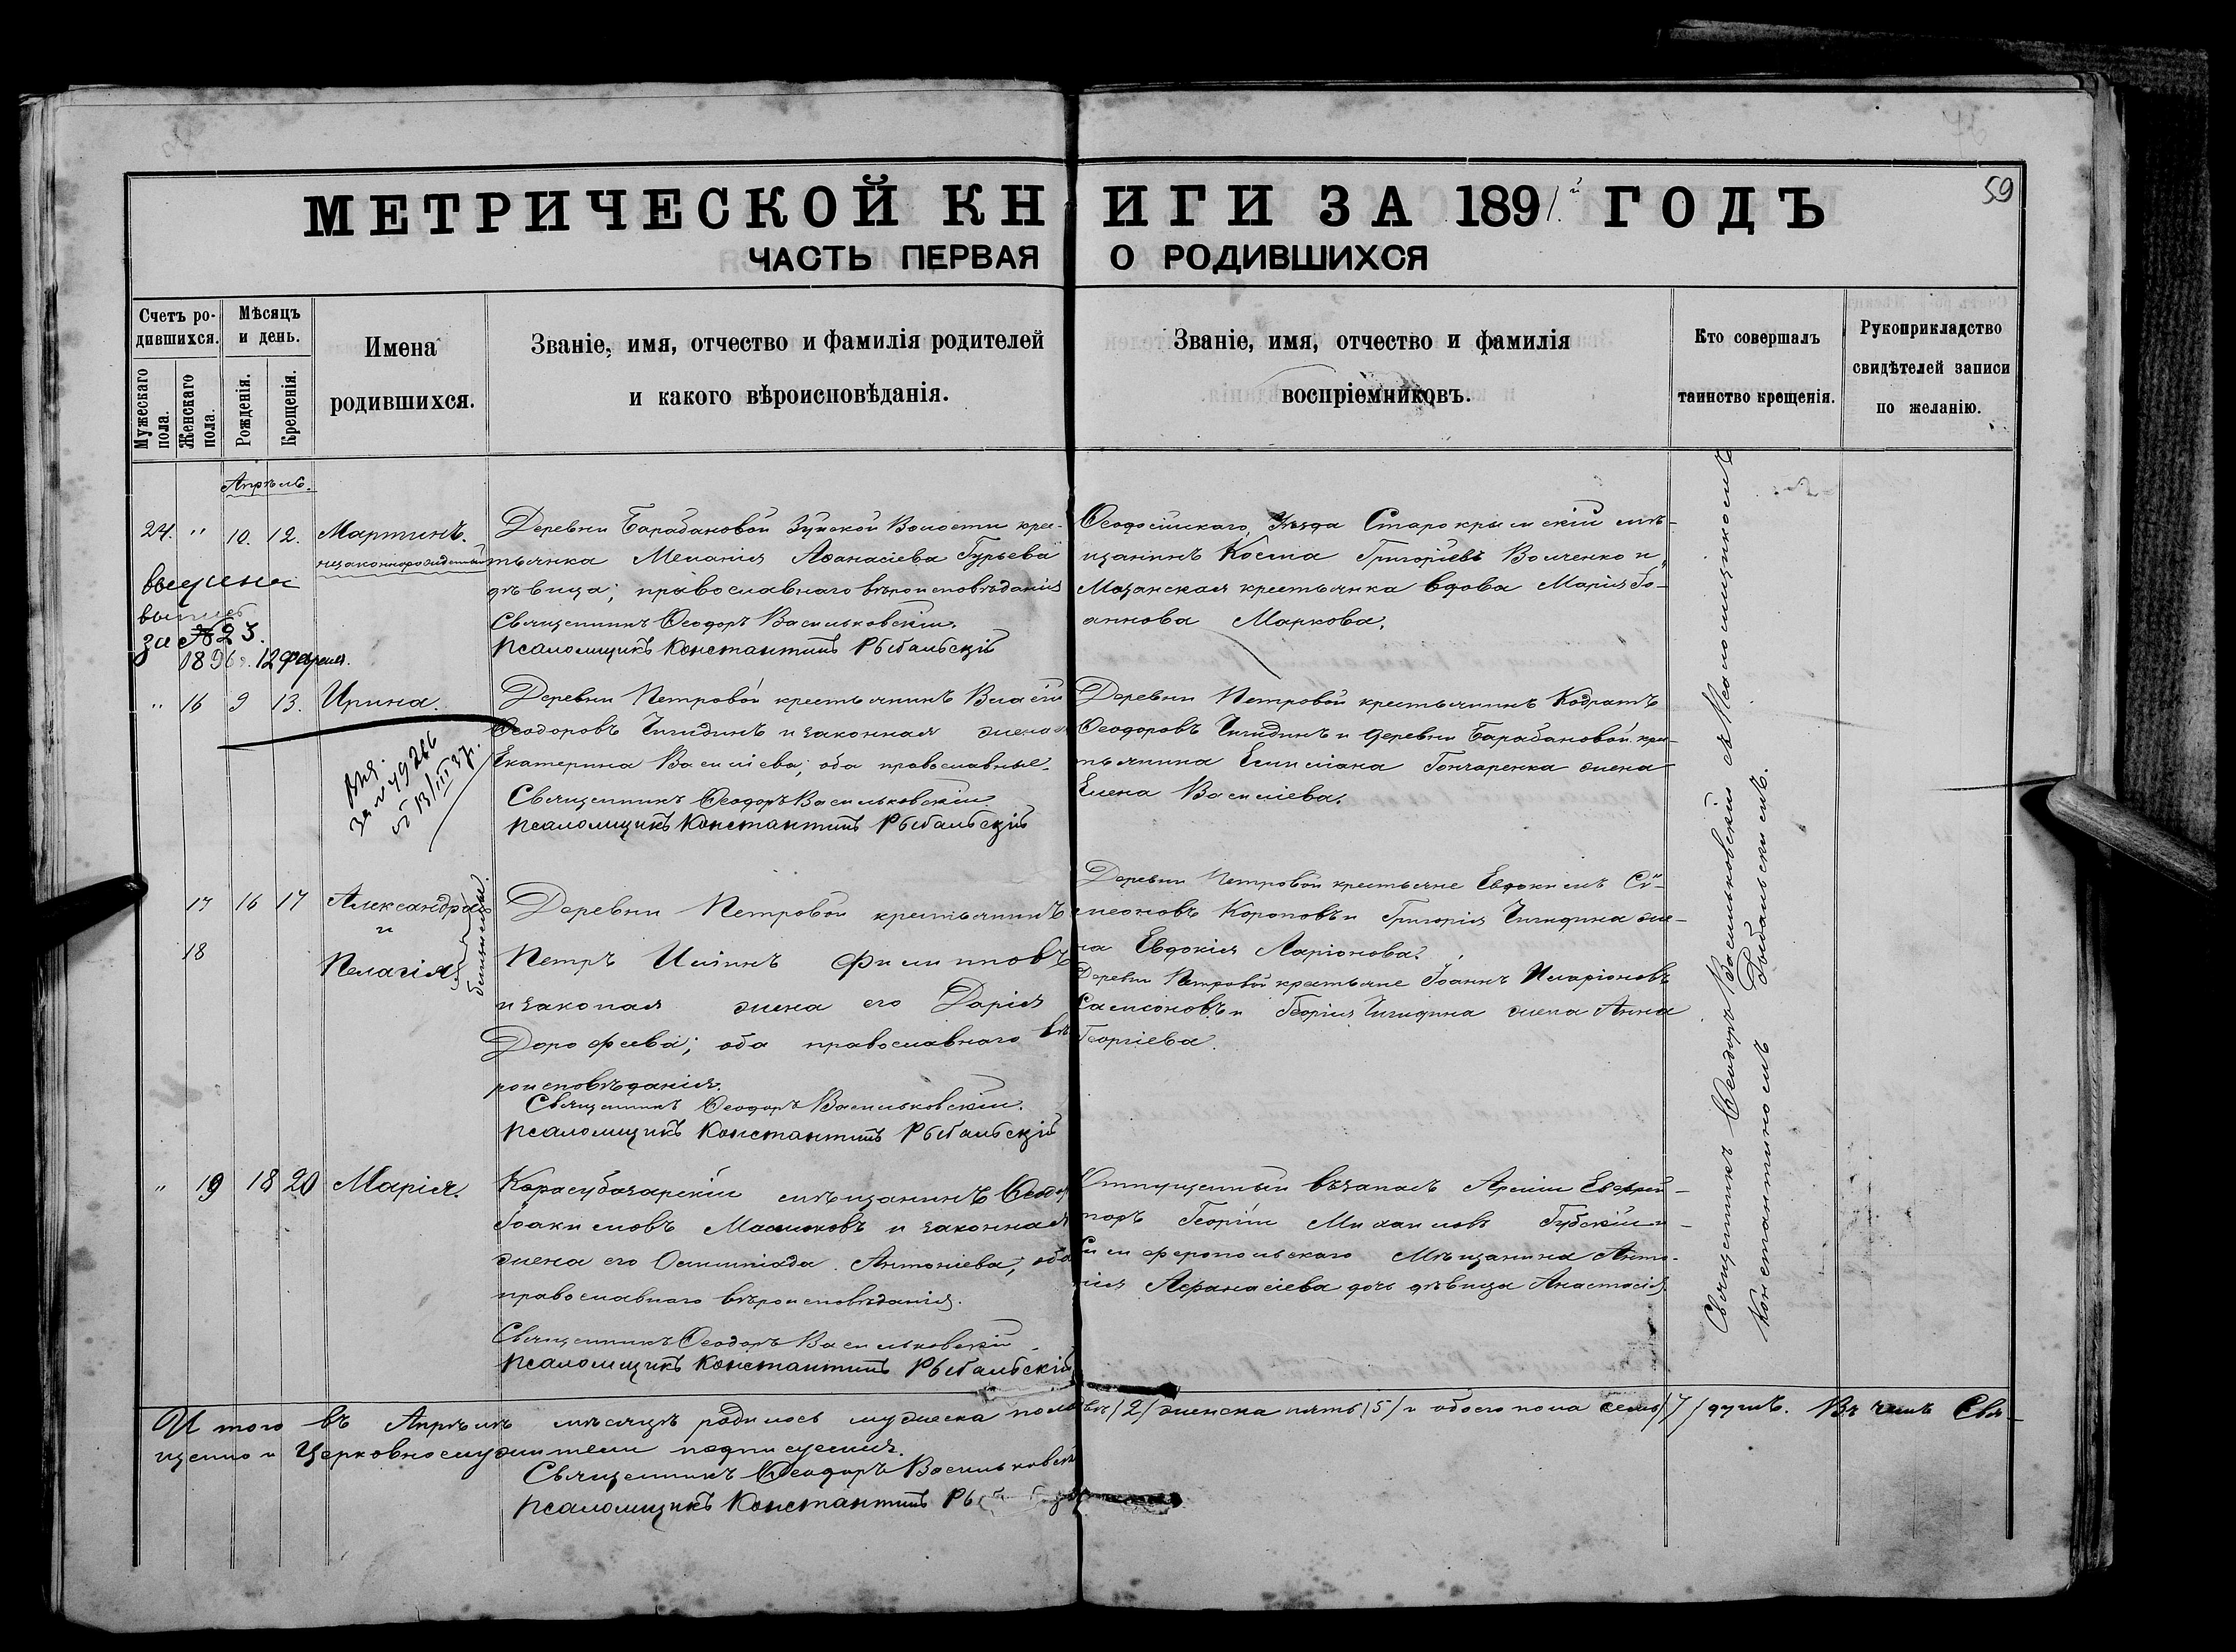 59
МЕТРИЧЕСКОЙ КНИГИ ЗА 1891й ГОДЪ
ЧАСТЬ ПЕРВАЯ О РОДИВШИХСЯ
Счетъ родившихся.
Мужескаго пола.
Женскаго пола.
Мѣсяцъ и день.
Рожденія.
Крещенія.
Имена
родившихся.
Званіе, имя, отчество и фамилія родителей
и какого вѣроисповѣданія.
Званіе, имя, отчество и фамилія
воспріемниковъ.
Кто совершалъ
таинство крещенія.
Рукоприкладство
свидѣтелей записи
по желанію.
Апрѣль.
24. " 10. 12. Мартинъ.
незаконнорожденный
за №23.
1896 г. 12 февраля.
Деревни Барабановой Зуйской Волости крес-
тьянка Меланія Аѳанасіева Гурьева
дѣвица; православнаго вѣроисповѣданія
Священникъ Ѳеодоръ Васильковскій.
Псаломщикъ Константинъ Рыбальскій
Ѳеодосійскаго Уѣзда Старокрымскій мѣ-
щанинъ Косма Григоріевъ Волченко и
Мазанская крестьянка вдова Марія Іо-
аннова Маркова.
" 16 9 13. Ирина.
Деревни Петровой крестьянинъ Власій
Ѳеодоровъ Чигидинъ и законная жена
Екатерина Василіева; оба православные.
Священникъ Ѳеодоръ Васильковскій
Псаломщикъ Константинъ Рыбальскій
Деревни Петровой крестьянинъ Кодратъ
Ѳеодоровъ Чигидинъ и деревни Барабановой крес-
тьянина Емиліана Гончаренка жена
Елена Василіева.
17 16 17 Александра
и
18 Пелагія
близнецы.
Деревни Петровой крестьянинъ
Петръ Илiинъ Филипповъ
и законая жена его Дарія
Дорофеева; оба православнаго вѣ
роисповѣданія.
Священникъ Ѳеодоръ Васильковскій.
Псаломщикъ Константинъ Рыбальскій
Деревни Петровой крестьяне Евдокимъ Си-
меоновъ Короповъ и Григорія Чигидина же-
на Евдокія Ларіонова.
Деревни Петровой крестьяне Іоаннъ Иларіоновъ
Самсоновъ и Георгія Чигидина жена Анна
Георгіева.
" 19 18 20 Марія.
Карасубазарскій мѣщанинъ
Іоакимовъ Маслюковъ и законная
жена его Олимпіада Антоніева; оба
православнаго вѣроисповѣданія.
Священникъ Ѳеодоръ Васильковскій
Псаломщикъ Константинъ Рыбальскій
Отпущенный въ запасъ Арміи Ефрей-
торъ Георгій Михаиловъ Губскій и
Симферопольскаго Мѣщанина Анто-
нія Аѳанасіева дочь дѣвица Анастасія
Священникъ Ѳеодоръ Васильковскій съ Псаломщикомъ
Константиномъ Рыбальскимъ.
И того въ Апрѣлѣ мѣсяцѣ родилось мужеска пола два /2/ женска пять /5/ и обоего пола семь /7/ душъ. Въ чемъ Свя-
щенно и Церковнослужители подписуемся.
Священникъ Ѳеодоръ Васильковскій
Псаломщикъ Константинъ